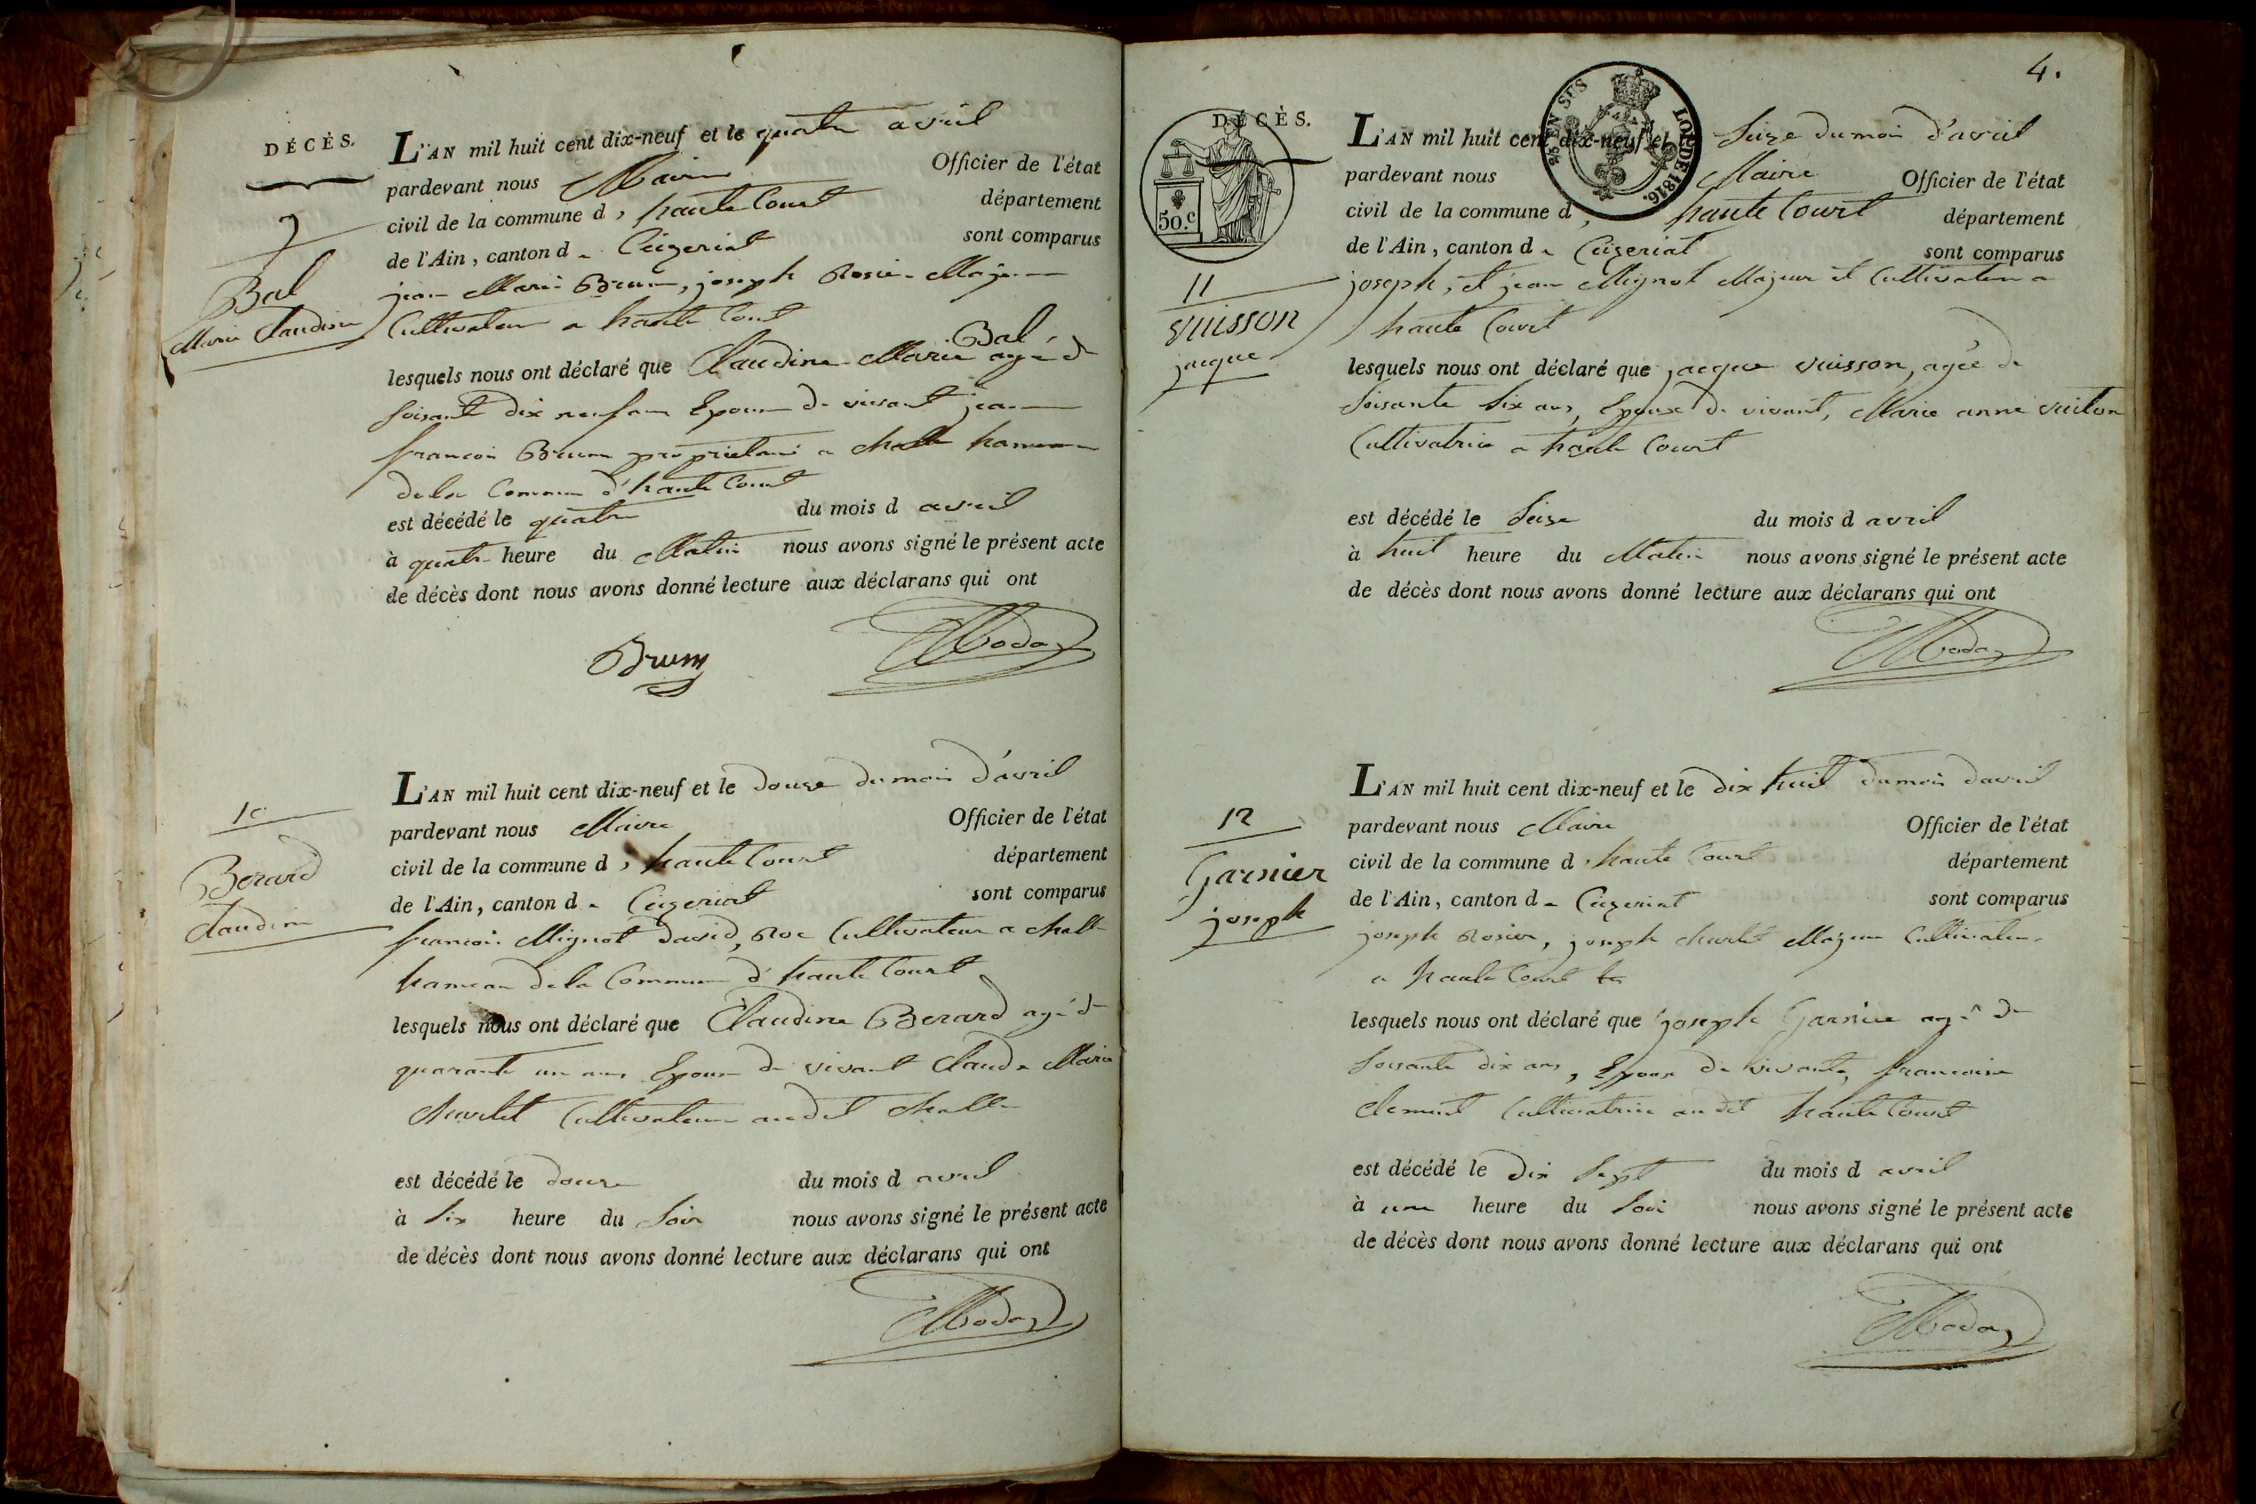 DÉCÈS.
L'AN mil huit cent dix-neuf et le quatre avril
pardevant nous Maire Officier de l'état
civil de la commune d, hautecourt département
de l'Ain, canton d. Ceizeriat sont comparus
9
Bal
Marie Claudine
jean Marie Brun, joseph Rosier Majeur
Cultivateur a haute Court
Bal
lesquels nous ont déclaré que Claudine Marie agé de
soisante dix neuf ans Epouse de vivant jean
francois Brun propriétaire a challe hameau
de la Commune d'haute Court
est décédé le quatre du mois d avril
à quatre heure du Matin nous avons signé le présent acte
de décès dont nous avons donné lecture aux déclarans qui ont
Brun
L'AN mil huit cent dix-neuf et le douze du mois d'avril
10
pardevant nous Maire Officier de l'état
civil de la commune d, haute Court département
de l'Ain, canton d. Ceizeriat sont comparus
Berard
Claudine
francois Mignot David, Roc Cultivateur a challe
hameau de la Commune d'haute Court
lesquels nous ont déclaré que Claudine Berard agé de
quarante un ans Epouse de vivant Claude Marie
Charlet Cultivateur audit challe
est décédé le douze du mois d avril
à six heure du soir nous avons signé le présent acte
de décès dont nous avons donné lecture aux déclarans qui ont
4.
DÉCÈS.
50.c
25 EN SUS
LOI DE 1816.
L'AN mil huit cent dix-neuf et Seize du mois d'avril
pardevant nous Maire Officier de l'état
civil de la commune d, haute Court département
de l'Ain, canton d. Ceizeriat sont comparus
11
vuisson
jacque
joseph, et jean Mignot Majeur et Cultivateur a
haute Court
lesquels nous ont déclaré que jacque vuisson, agée de
soisante six ans, Epoux de vivant, Marie anne
Cultivatrice a haute Court
est décédé le Seize du mois d avril
à huit heure du Matin nous avons signé le présent acte
de décès dont nous avons donné lecture aux déclarans qui ont
L'AN mil huit cent dix-neuf et le dix huit du mois davril
12
pardevant nous Maire Officier de l'état
civil de la commune d, haute Court département
de l'Ain, canton d. Ceizeriat sont comparus
Garnier
joseph
joseph Rosier, joseph charlet Majeur Cultivateur
a haute Court
lesquels nous ont déclaré que joseph Garnier agé de
soisante dix ans, Epoux de vivante, francoise
clement Cultivatrice audit haute Court
est décédé le dix sept du mois d avril
à une heure du soir nous avons signé le présent acte
de décès dont nous avons donné lecture aux déclarans qui ont